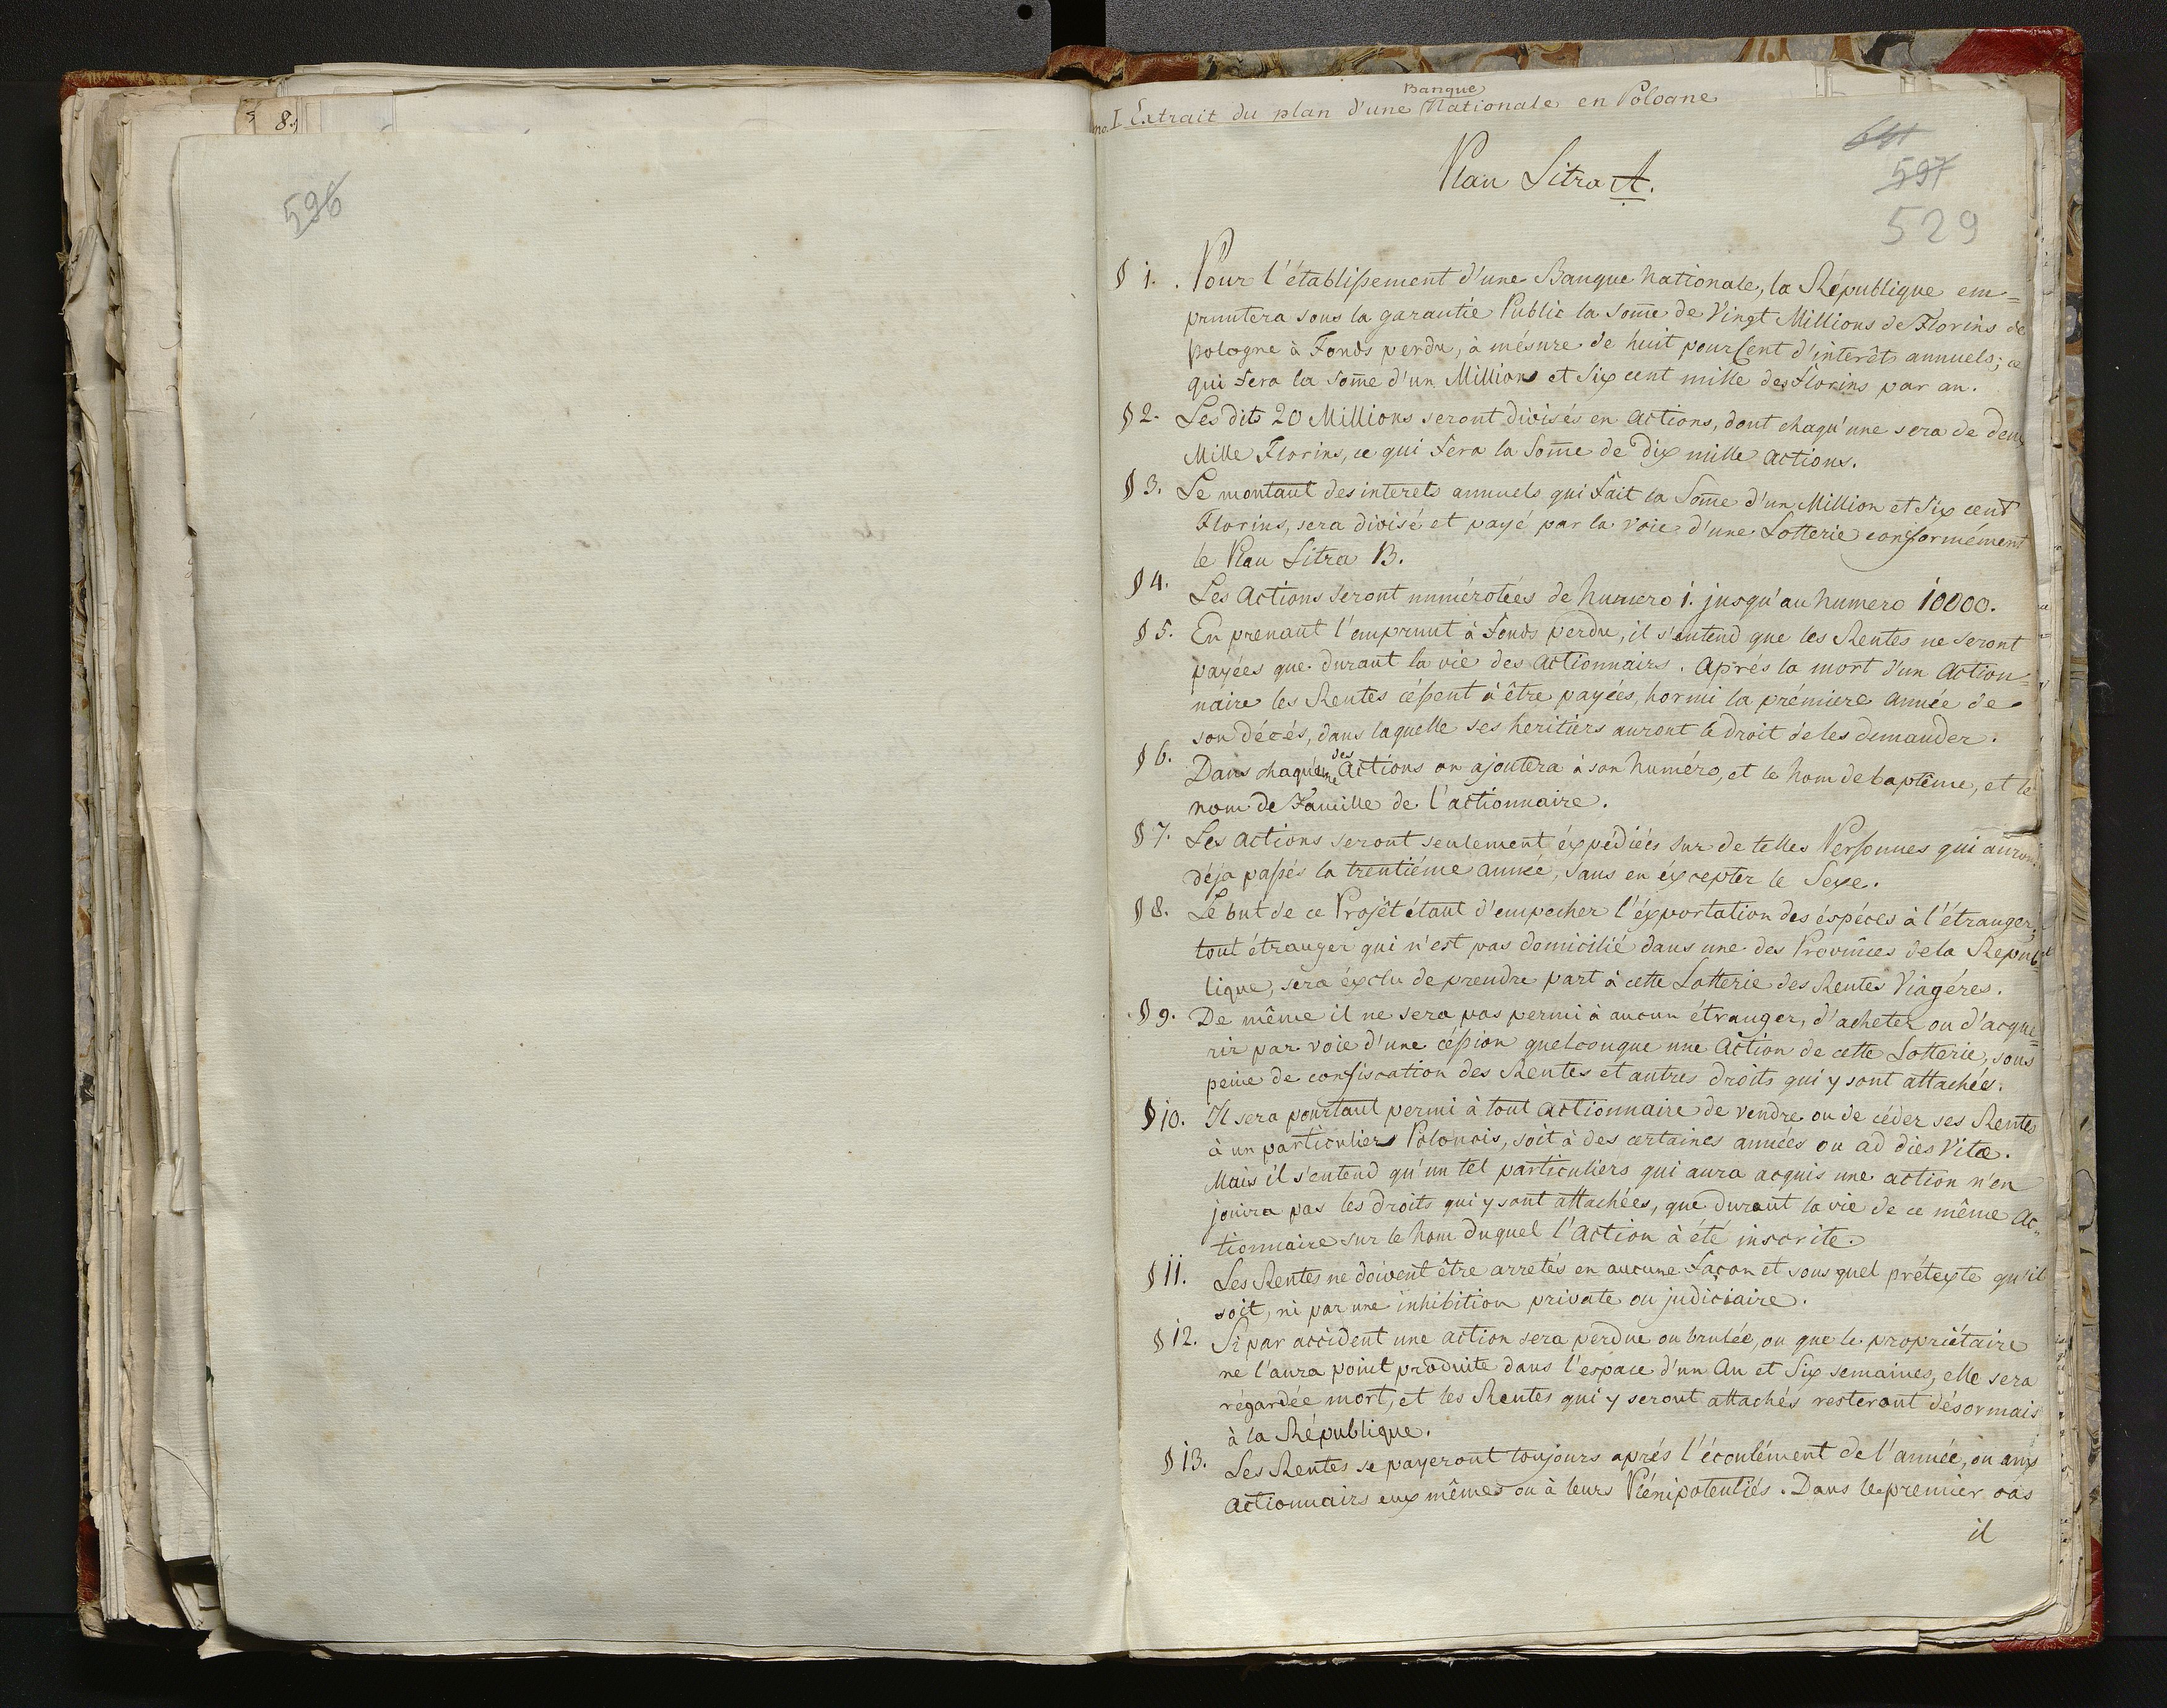 8.
596
no. I Extrait du plan d'une Banque Nationale en Pologne
Plan Litra A.
641
597
529
§ 1. Pour l'établissement d'une Banque Nationale, la République em=
pruntera sous la garantie Public la som̄e de Vingt Millions de Florins de
pologne à Fonds perdu, à mésure de huit pour Cent d'interêts annuels; ce
qui fera la som̄e d'un Millions et Six cent mille des Florins par an.
§ 2. Les dits 20 Millions seront divisés en Actions, dont chaqu'une sera de deux
Mille Florins, ce qui fera la Som̄e de Dix mille Actions.
§ 3. Le montant des interets annuels qui fait la Som̄e d'un Million et Six cent
Florins, sera divisé et payé par la voie d'une Lotterie conformément
le Plan Litra B.
§ 4. Les Actions seront numérotées de Numero 1. jusqu'au Numero 10000.
§ 5. En prenant l'emprunt à Fonds perdu, il s'entend que les Rentes ne seront
payées que durant la vie des Actionnairs. Aprés la mort d'un Action=
naire les Rentes céssent à être payées, hormi la prémiere année de
son décés, dans laquelle ses heritiers auront le droit de les demander.
§ 6. Dans chaqu'une des Actions on ajoutera à son Numéro, et le Nom de baptême, et le
nom de Famille de l'actionnaire.
§ 7. Les Actions seront seulement éxpédiées sur de telles Personnes qui auront
déja passés la trentiéme année, sans en éxcepter le Sexe.
§ 8. Le but de ce Projêt étant d'empecher l'éxportation des éspéces à l'étranger,
tout étranger qui n'est pas domicilié dans une des Provinces de la Repub=
lique, sera éxclu de prendre part à cette Lotterie des Rentes Viagéres.
§ 9. De même il ne sera pas permi à aucun étranger, d'acheter ou d'acque=
rir par voie d'une céssion quelconque une Action de cette Lotterie, sous
peine de confiscation des Rentes et autres droits qui y sont attachées.
§ 10. Il sera pourtant permi à tout Actionnaire de vendre ou de céder ses Rentes
à un particuliers Polonois, soit à des certaines années ou ad dies Vitæ.
Mais il s'entend qu'un tel particuliers qui aura acquis une action n'en
jouira pas les droits qui y sont attachées, que durant la vie de ce même Ac=
tionnaire sur le Nom duquel l'Action à été inscrite.
§ 11. Les Rentes ne doivent être arretés en aucune Façon et sous quel prétexte qu'il
soit, ni par une inhibition private ou judiciaire.
§ 12. Si par accident une action sera perdue ou brulée, ou que le propriétaire
ne l'aura point produite dans l'espace d'un An et Six semaines, elle sera
régardée mort, et les Rentes qui y seront attachés resteront désormais
à la République.
§ 13. Les Rentes se payeront toujours aprés l'écoulément de l'année, ou aux
Actionnairs eux mêmes ou à leurs Plénipotentiés. Dans le premier cas
il